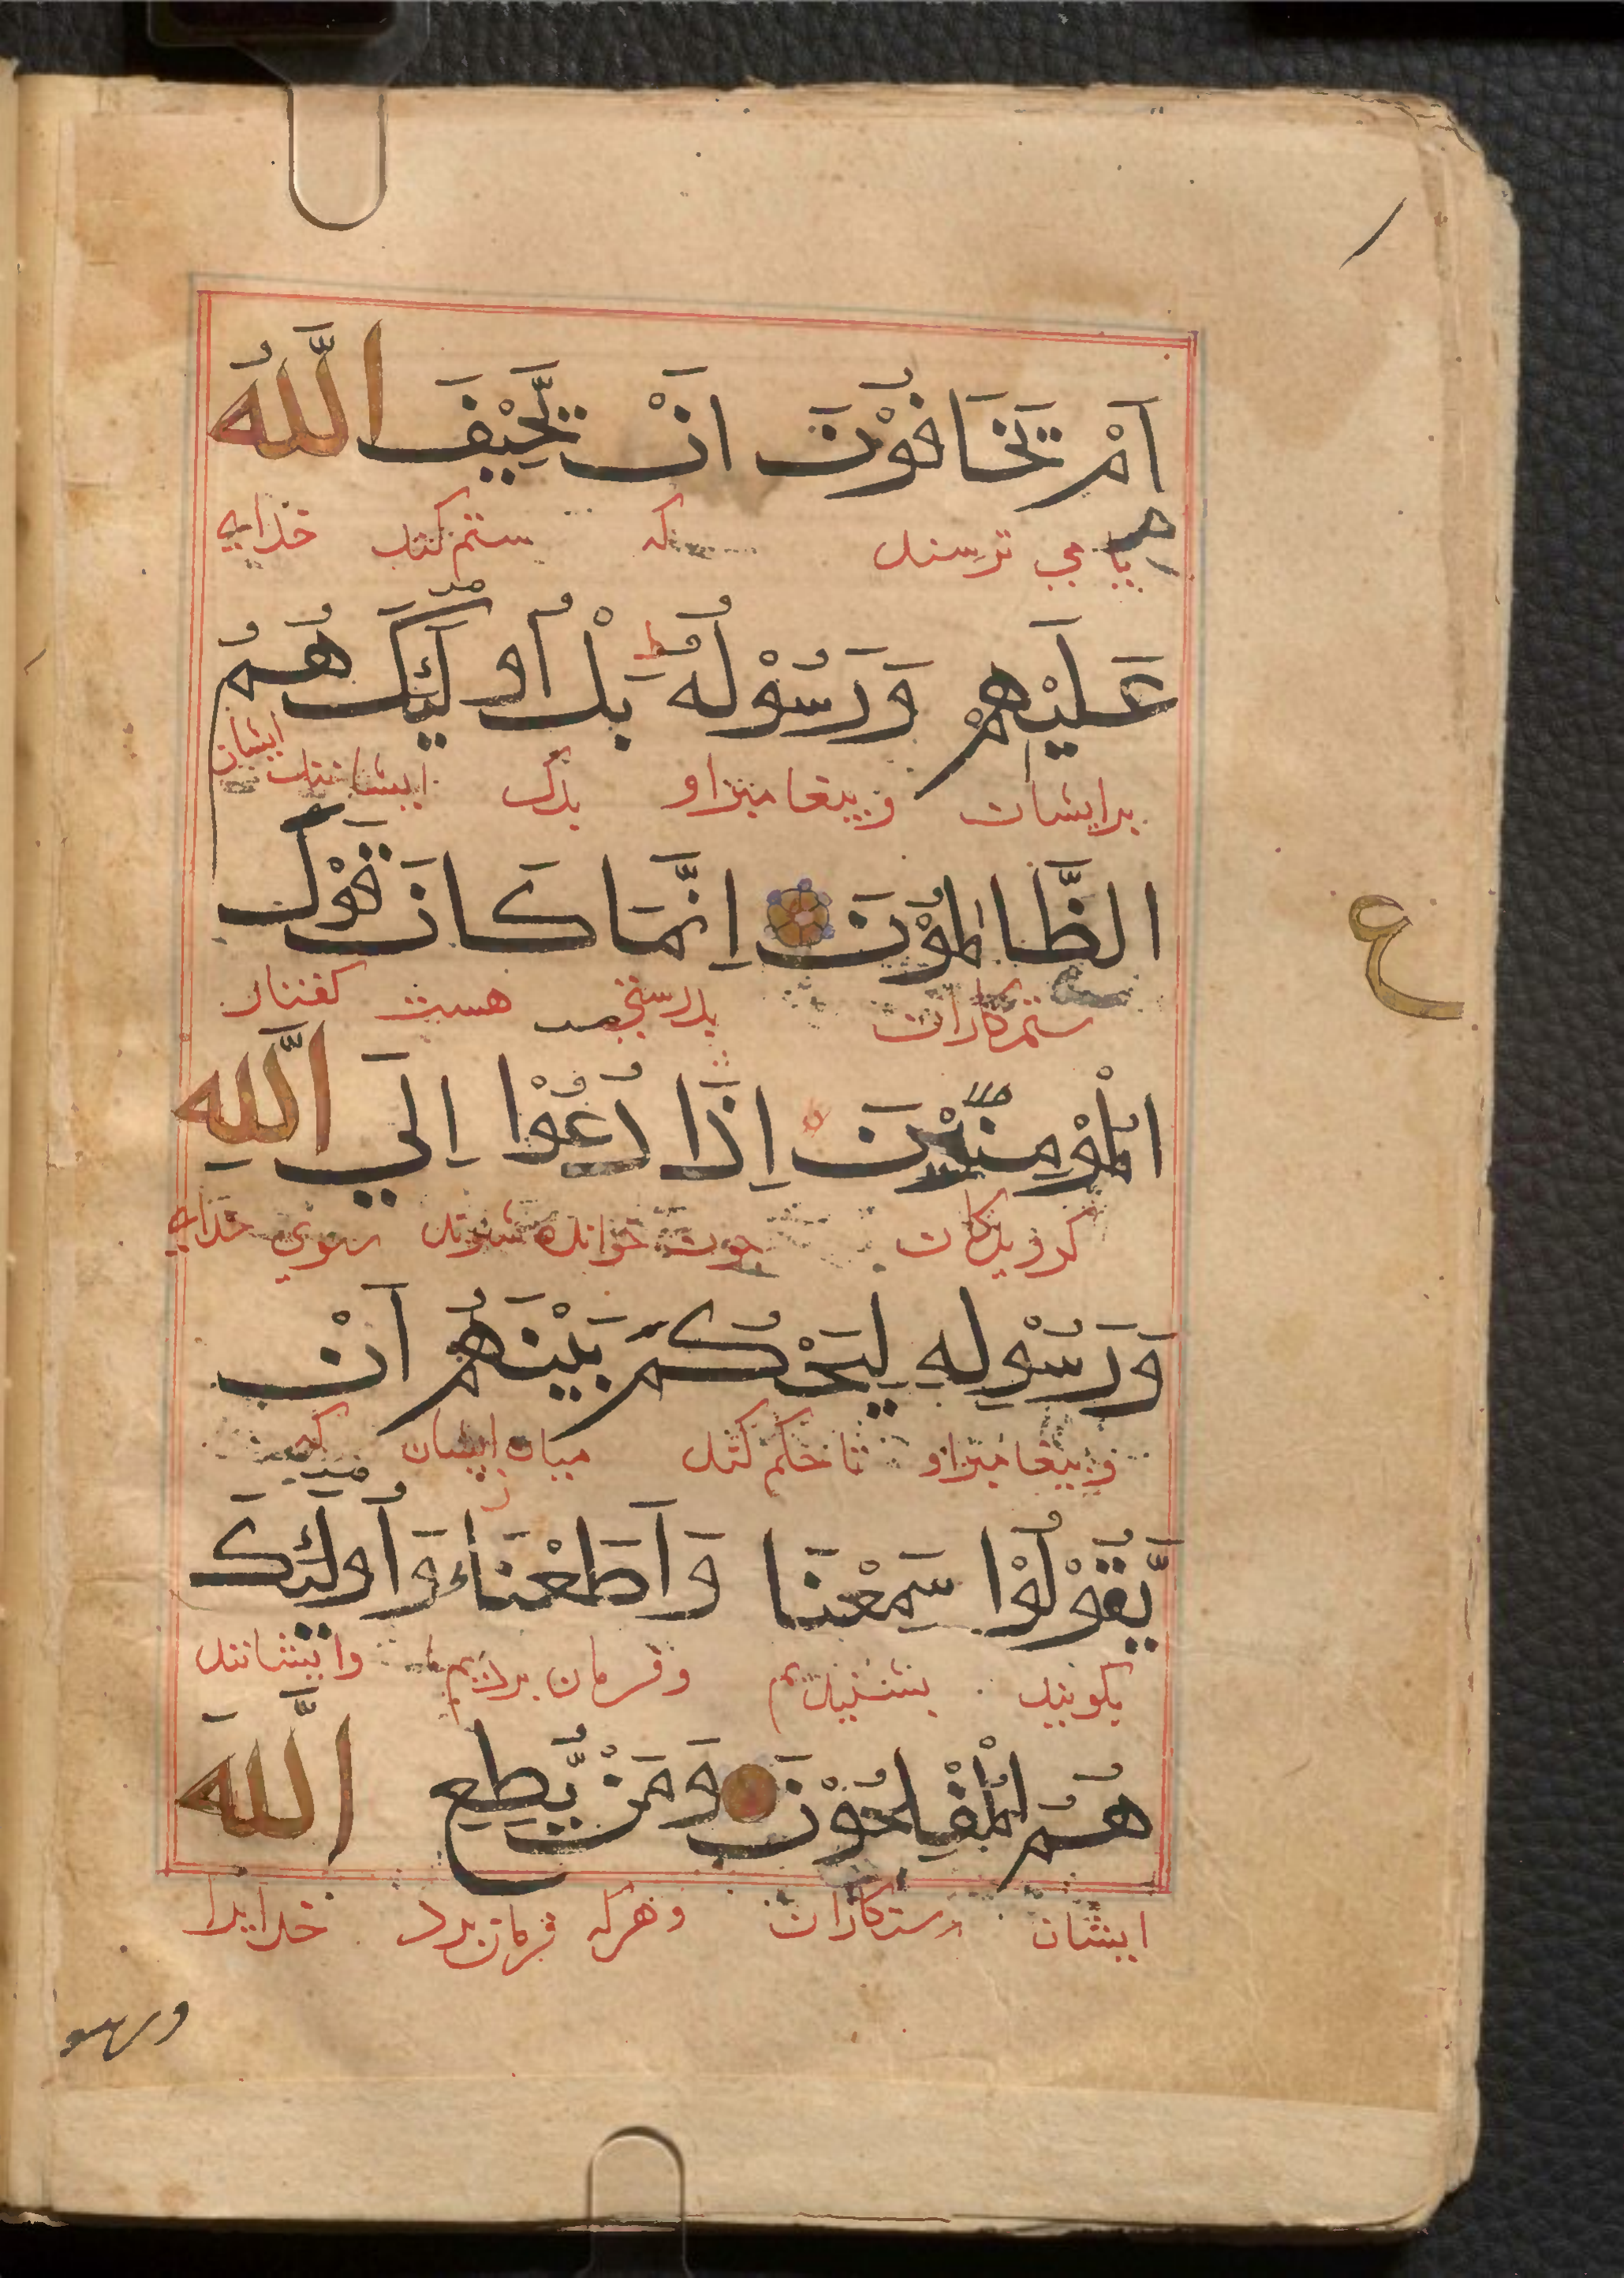 اَمْ تَخَافُوْنَ اَنْ يَّحِيْفَ اللّٰهُ
يا مي ترسند كه ستم كند خداي
عَلَيْهِمْ وَرَسُوْلُهُ ط بَلْ اُولٰئِكَ هُمُ
برايشان و پيغامبر او بلك ايشانند ايشان
الظَّالِمُوْنَ اِنَّمَا كَانَ قَوْلَ
ستمكاران بدرستي هست گفتار
الْمُؤْمِنِيْنَ اِذَا دُعُوْا اِلَي اللّٰهِ
گرويدگان چون خوانده شوند سوي خداي
وَرَسُوْلِهِ لِيَحْكُمَ بَيْنَهُمْ اَنْ
و پيغامبر او تا حكم كند ميان ايشان كه
يَّقُوْلُوْا سَمِعْنَا وَاَطَعْنَا وَاُولٰئِكَ
بگويند بشنيديم و فرمان برديم و ايشانند
هُمُ الْمُفْلِحُوْنَ وَمَنْ يُّطِعِ اللّٰهَ
ايشان رستگاران و هركه فرمان برد خدايرا
ع
ورسو